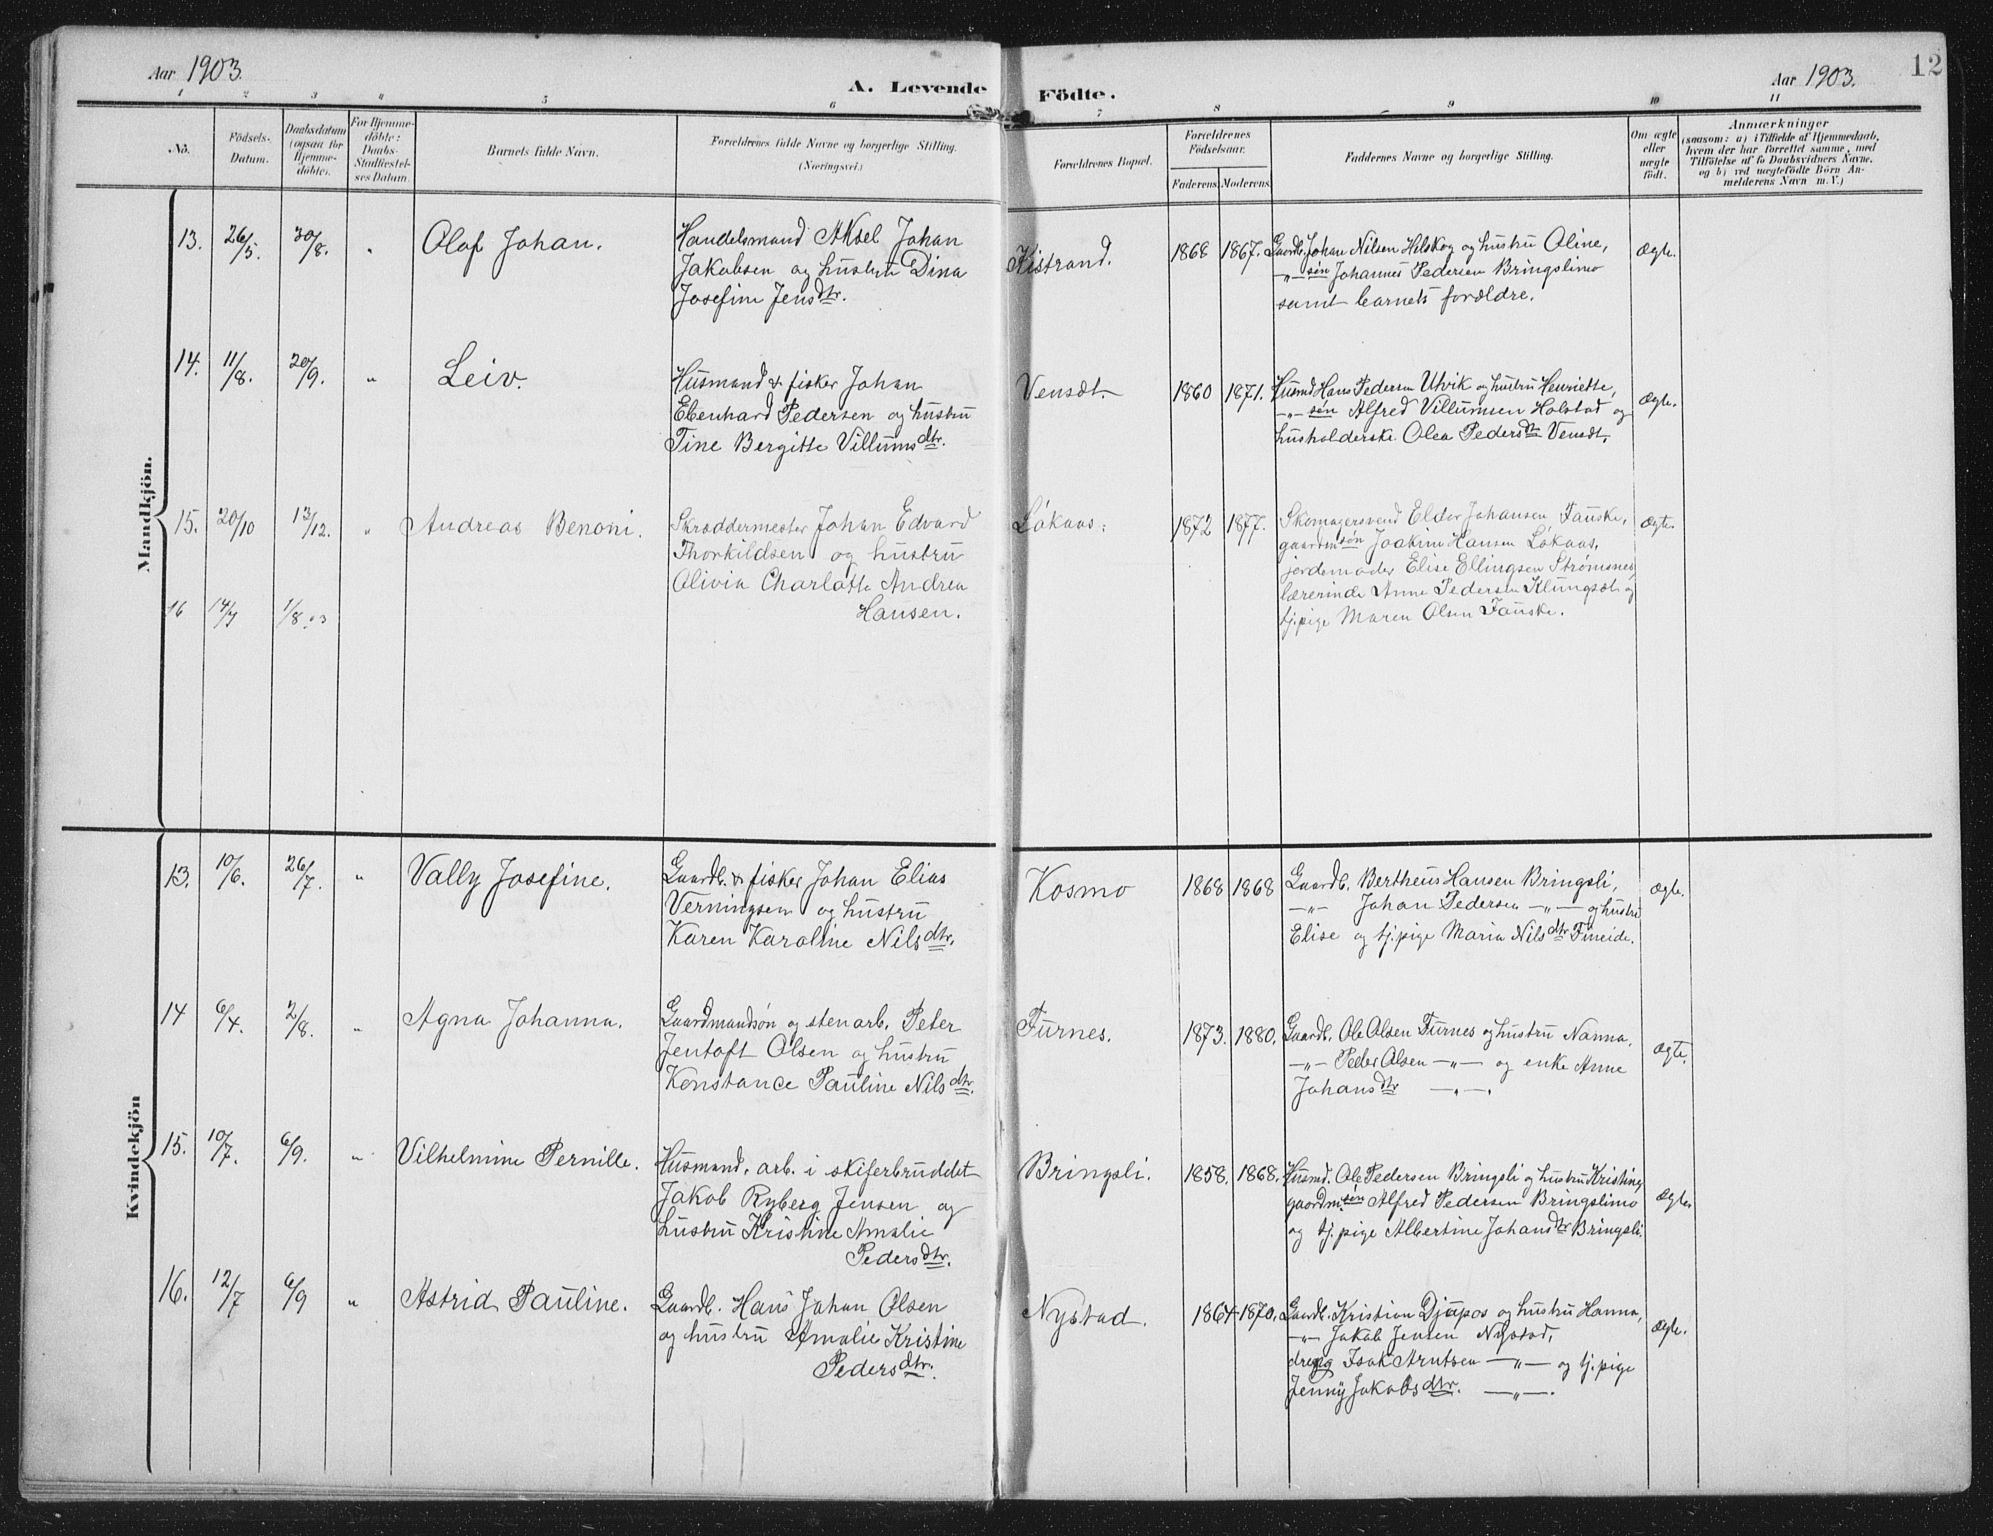 Aar 1903.
A. Levende Födte.
Aar 1903.
12
1 2 3 " 5 6 7 8 9 10 11
No.
Födsels-
Datum.
Daabsdatum
(ogsaa for
Hjemme-
döbte).
For Hjemme-
döbte:
Daabs-
Stadfæstel-
ses Datum.
Barnets fulde Navn.
Forældrenes fulde Navne og borgerlige Stilling.
(Næringsvei.)
Forældrenes Bopæl.
Forældrenes
Födselsaar.
Faderens.
Moderens.
Faddernes Navne og borgerlige Stilling.
Om ægte
eller
uægte
födt.
Anmærkninger
(saasom: a) i Tilfælde af Hjemmedaab,
hvem der har forrettet samme, med
Tilföielse af to Daabsvidners Navne,
og b) ved uægtefödte Börn An-
melderens Navn m. V.)
Mandkjön.
13. 26/5. 30/8. " Olaf Johan.
Handelsmand Aksel Johan
Jakobsen og hustru Dina
Josefine Jensdtr.
Kistrand.
1868 1867.
Gaardb. Johan Nilsen Helskog og hustru Oline,
-"- søn Johannes Pedersen Bringslimo
samt barnets forældre.
Ægte.
14. 11/8. 20/9. " Leiv.
Husmand & fisker Johan
Ebenhard Pedersen og hustru
Tine Bergitte Villumsdtr.
Vensæt.
1860 1871.
Husmd Hans Pedersen Utvik og hustru Henriette,
-"- søn Alfred Villumsen Holstad og
husholderske Olea Pedersdtr Vensæt.
Ægte.
15. 20/10 13/12. " Andreas Benoni.
Skræddermester Johan Edvard
Thorkildsen og hustru
Olivia Charlotte Andrea
Hansen.
Løkaas.
1872 1877.
Skomagersvend Eldor Johansen Fauske,
gaardmsøn Joakim Hansen Løkaas,
jordemoder Elise Ellingsen Strømsnes,
lærerinde Anne Pedersen Klungsæt og
tj.pige Maren Olsen Fauske.
Ægte.
16 14/7 1/8.03
Kvindekjön
13. 10/6. 26/7. " Vally Josefine.
Gaardb. & fisker Johan Elias
Verningsen og hustru
Karen Karoline Nilsdtr.
Kosmo
1868 1868
Gaardb. Bertheus Hansen Bringsli,
-"- Johan Pedersen -"- og hustru
Elise og tj.pige Maria Nilsdtr Fineide.
Ægte.
14 6/4. 2/8. " Agna Johanna.
Gaardmandsøn og stenarb. Peter
Jentoft Olsen og hustru
Konstance Pauline Nilsdtr.
Furnes.
1873. 1880.
Gaardb. Ole Olsen Furnes og hustru Nanna,
-"- Peder Olsen -"- og enke Anne
Johansdtr -"-.
Ægte.
15. 10/7. 6/9. " Vilhelmine Pernille.
Husmand, arb. i skiferbruddet
Jakob Ryberg Jensen og
hustru Kristine Amalie
Pedersdtr.
Bringsli.
1858. 1868.
Husmd. Ole Pedersen Bringsli og hustru Kristine,
gaardm.søn Alfred Pedersen Bringslimo
og tj.pige Albertine Johansdtr Bringsli.
Ægte.
16. 12/7 6/9 " Astrid Pauline.
Gaardb. Hans Johan Olsen
og hustru Amalie Kristine
Pedersdtr.
Nystad.
1864 1870.
Gaardb. Kristian Djupos og hustru Hanna,
-"- Jakob Jensen Nystad,
dreng Isak Arntsen -"- og tj.pige
Jenny Jakobsdtr. -"-.
Ægte.